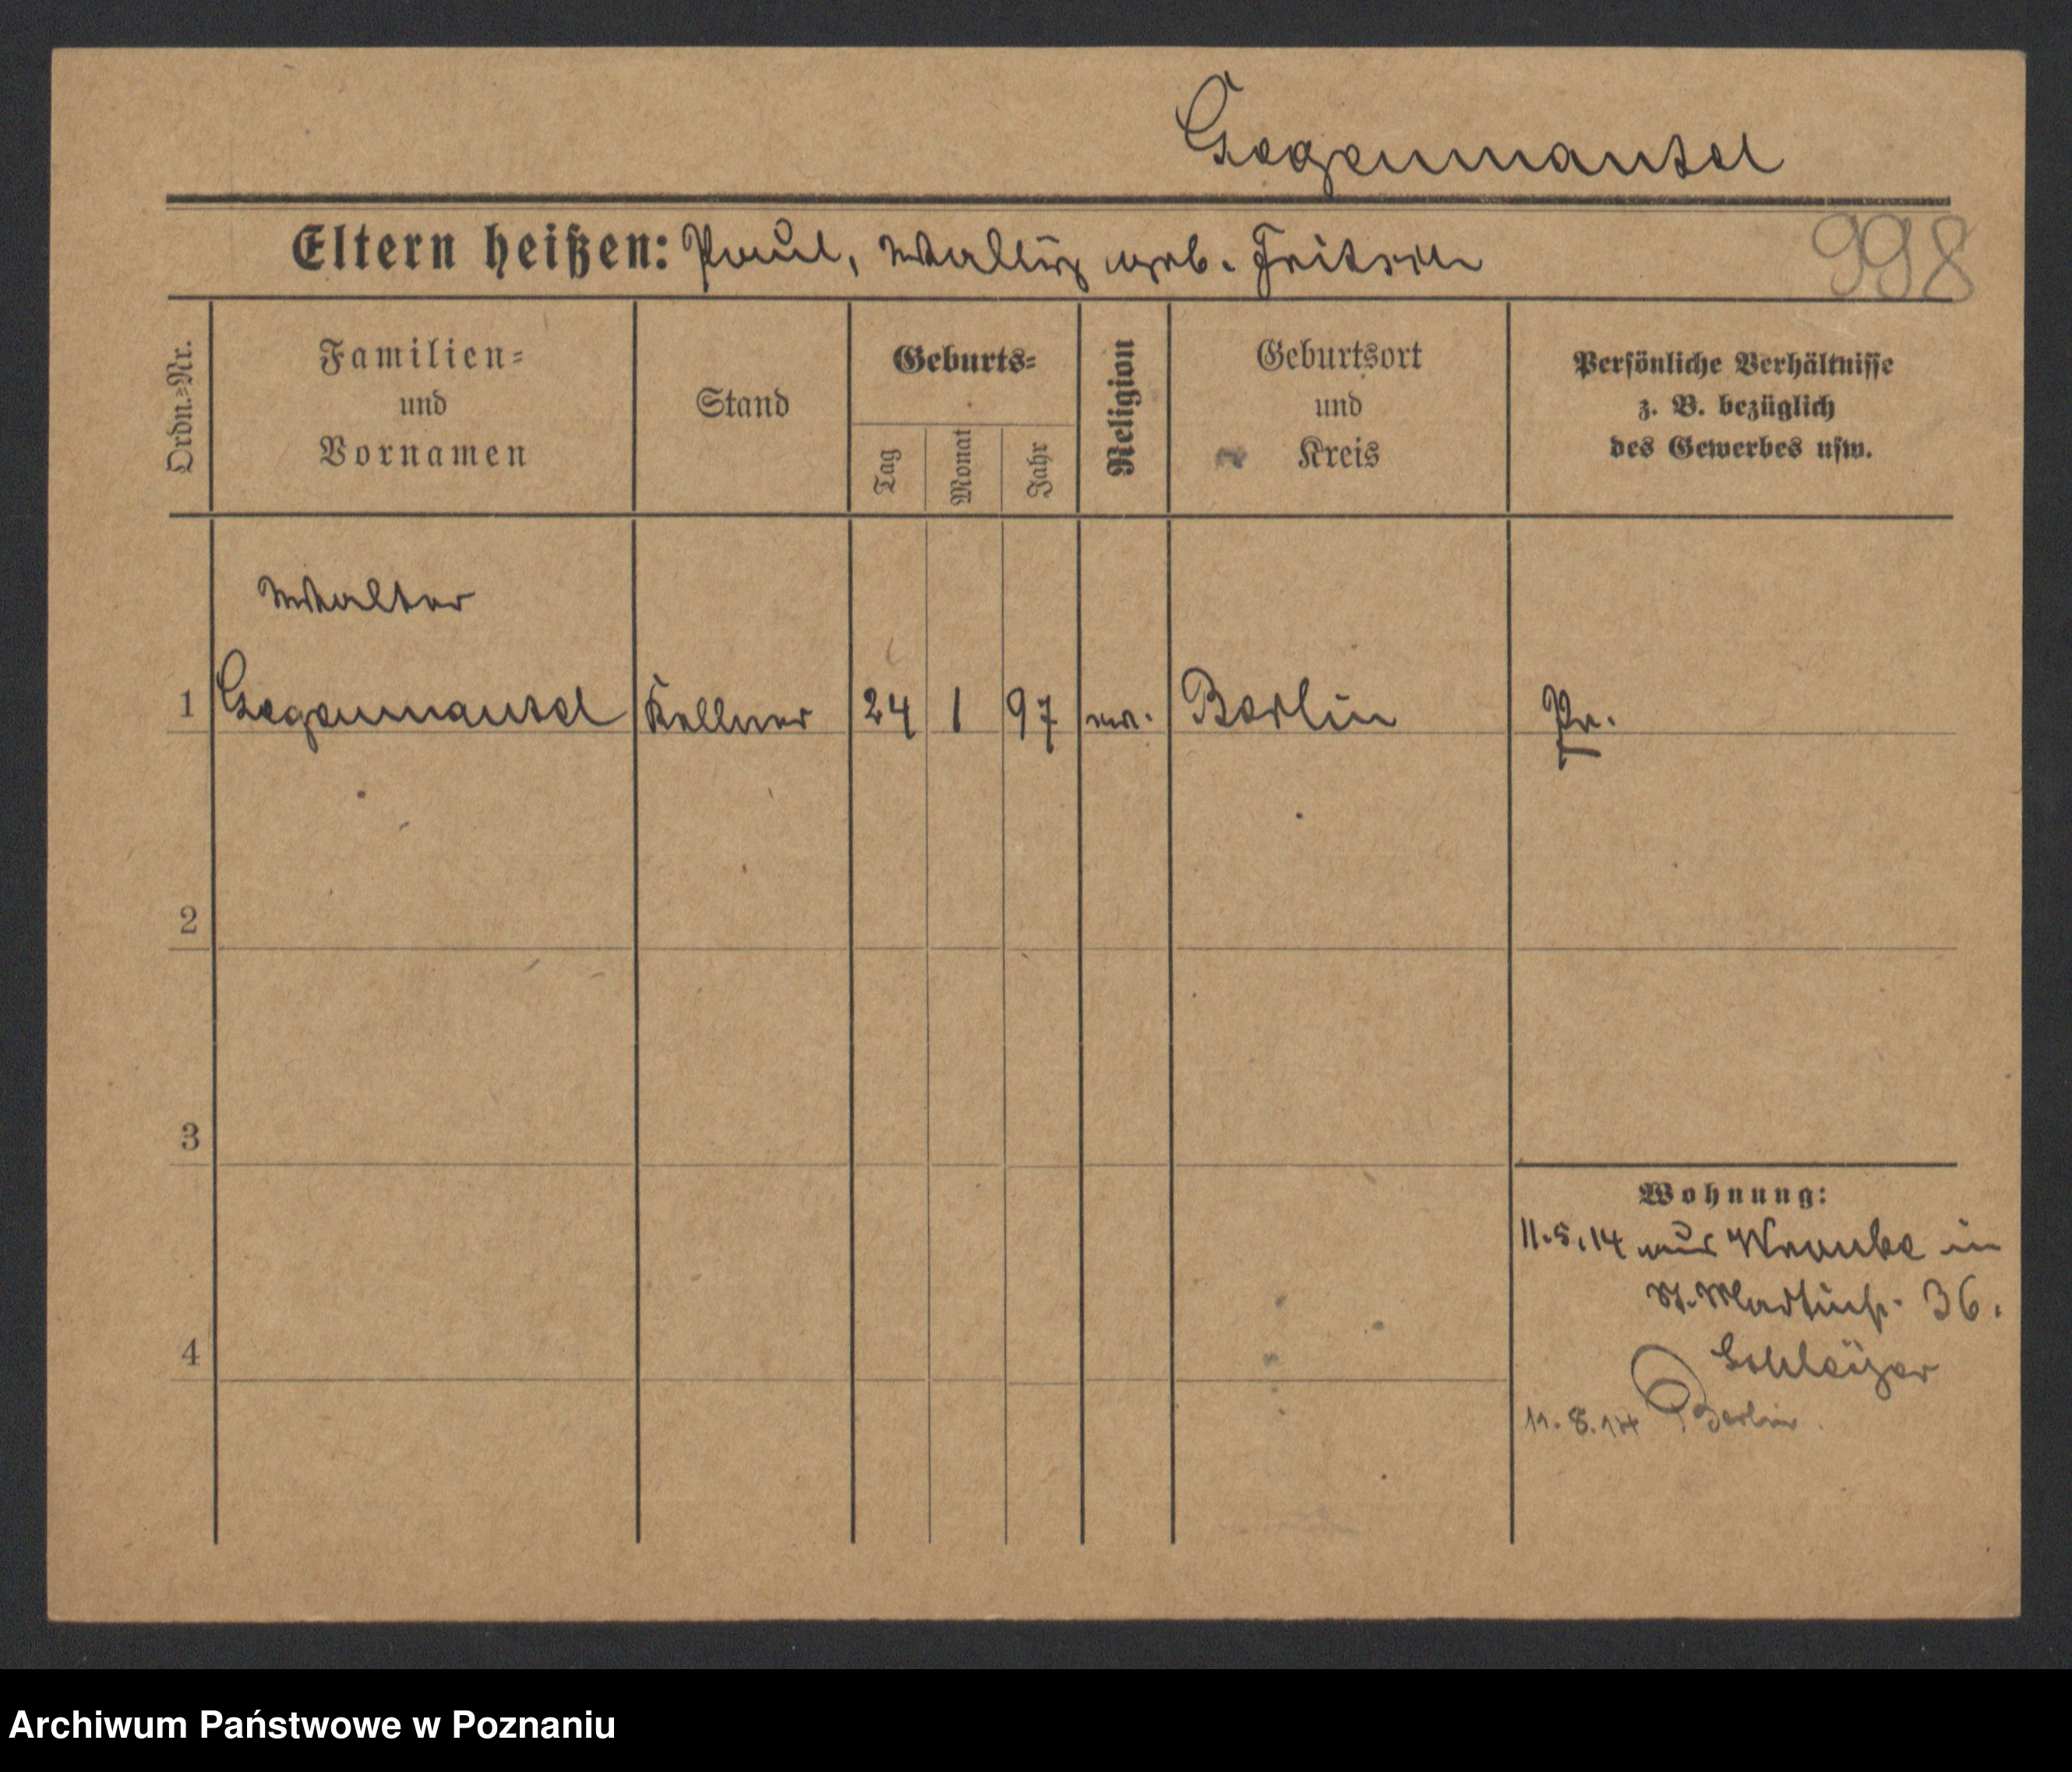 Gegenmantel
Eltern heißen: Paul, geb. Fritsch
998
Ordn.=Nr.
Familien=
und
Vornamen
Stand
Geburts=
Tag
Monat
Jahr
Religion
Geburtsort
und
Kreis
Persönliche Verhältnisse
z. B. bezüglich
des Gewerbes usw.
Walter
1 Gegenmantel Kellner 24 1 97 Berlin Pr.
2
3
4
Wohnung:
11.5.14 aus Wronke in
St. Martinstr. 36.
11.8.14 Berlin.
Archiwum Państwowe w Poznaniu